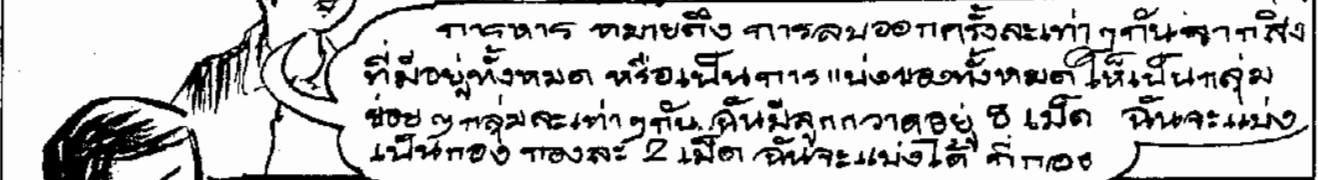 การหาร หมายถึง การลบออกครั้งละเท่าๆกันจากสิ่ง
ที่มีอยู่ทั้งหมด หรือเป็นการแบ่งของทั้งหมดให้เป็นกลุ่ม
ย่อยๆกลุ่มละเท่าๆกัน ฉันมีลูกกวาดอยู่ 8 เม็ด ฉันจะแบ่ง
เป็นกอง กองละ 2 เม็ด ฉันจะแบ่งได้ กี่กอง